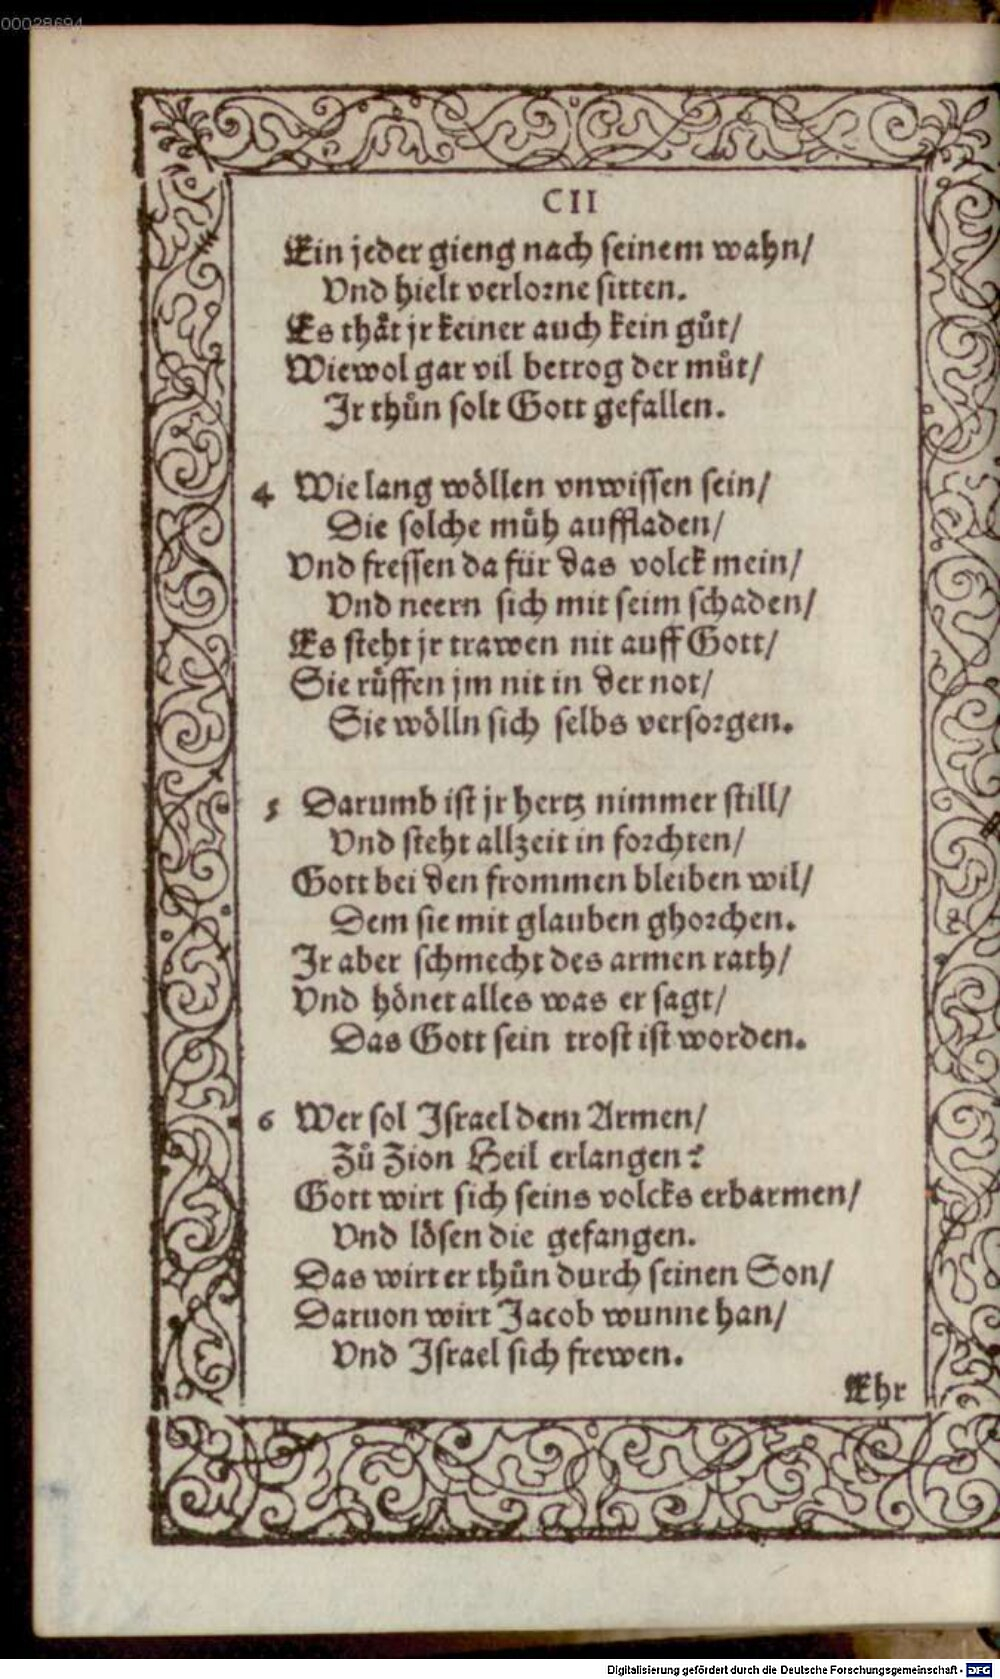 00028694
CII
Ein jeder gieng nach seinem wahn/
Vnd hielt verlorne sitten.
Es thåt jr keiner auch kein gůt/
Wiewol gar vil betrog der můt/
Jr thůn solt Gott gefallen.
4 Wie lang wöllen vnwissen sein/
Die solche můh auffladen/
Vnd fressen da für das volck mein/
Vnd neern sich mit seim schaden/
Es steht jr trawen nit auff Gott/
Sie růffen jm nit in der not/
Sie wölln sich selbs versorgen.
5 Darumb ist jr hertz nimmer still/
Vnd steht allzeit in forchten/
Gott bei den frommen bleiben wil/
Dem sie mit glauben ghorchen.
Jr aber schmecht des armen rath/
Vnd hönet alles was er sagt/
Das Gott sein trost ist worden.
6 Wer sol Israel dem Armen/
Zů Zion Heil erlangen?
Gott wirt sich seins volcks erbarmen/
Vnd lösen die gefangen.
Das wirt er thůn durch seinen Son/
Daruon wirt Jacob wunne han/
Vnd Israel sich frewen.
Ehr
Digitalisierung gefördert durch die Deutsche Forschungsgemeinschaft - DFG